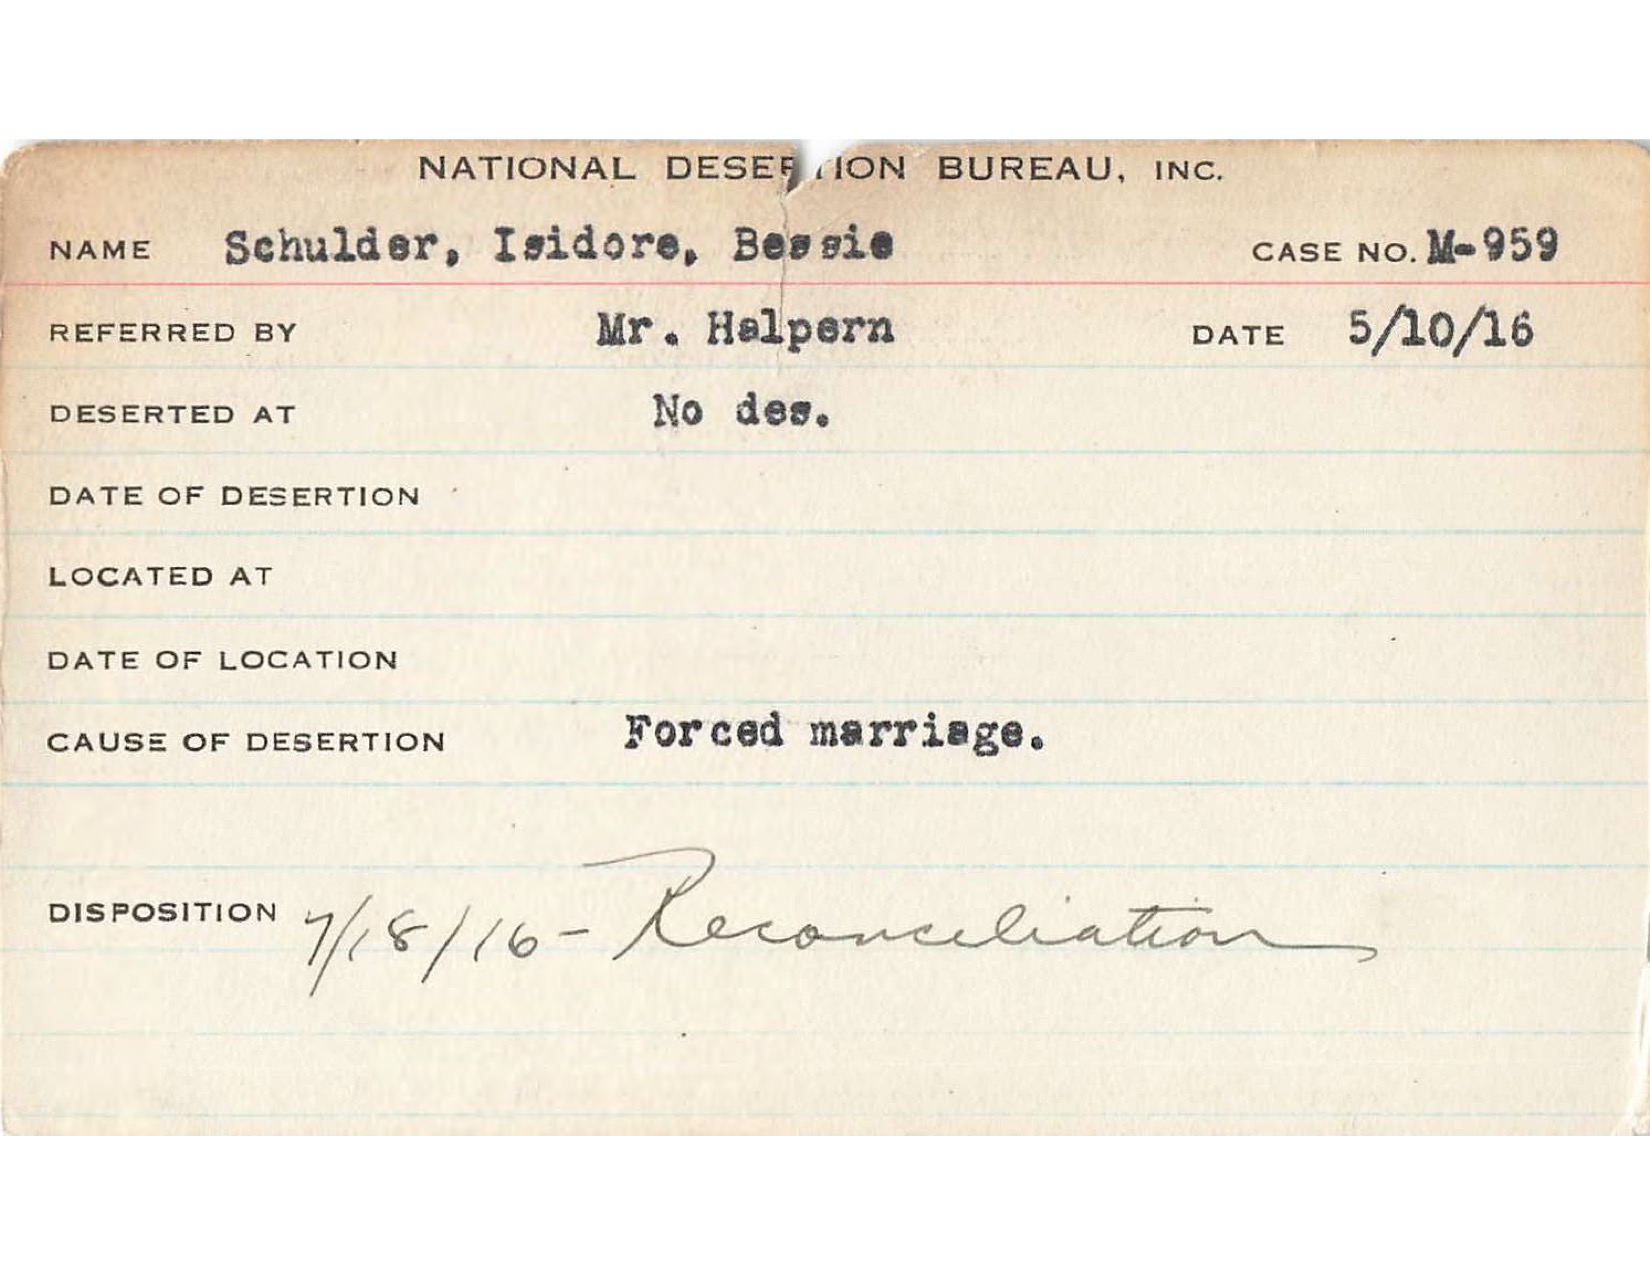 NATIONAL DESERTION BUREAU, INC.
NAME Schulder, Isidore, Bessie CASE NO. M-959
REFERRED BY Mr. Halpern DATE 5/10/16
DESERTED AT No des.
DATE OF DESERTION
LOCATED AT
DATE OF LOCATION
CAUSE OF DESERTION Forced marriage.
DISPOSITION 7/18/16 - Reconciliation